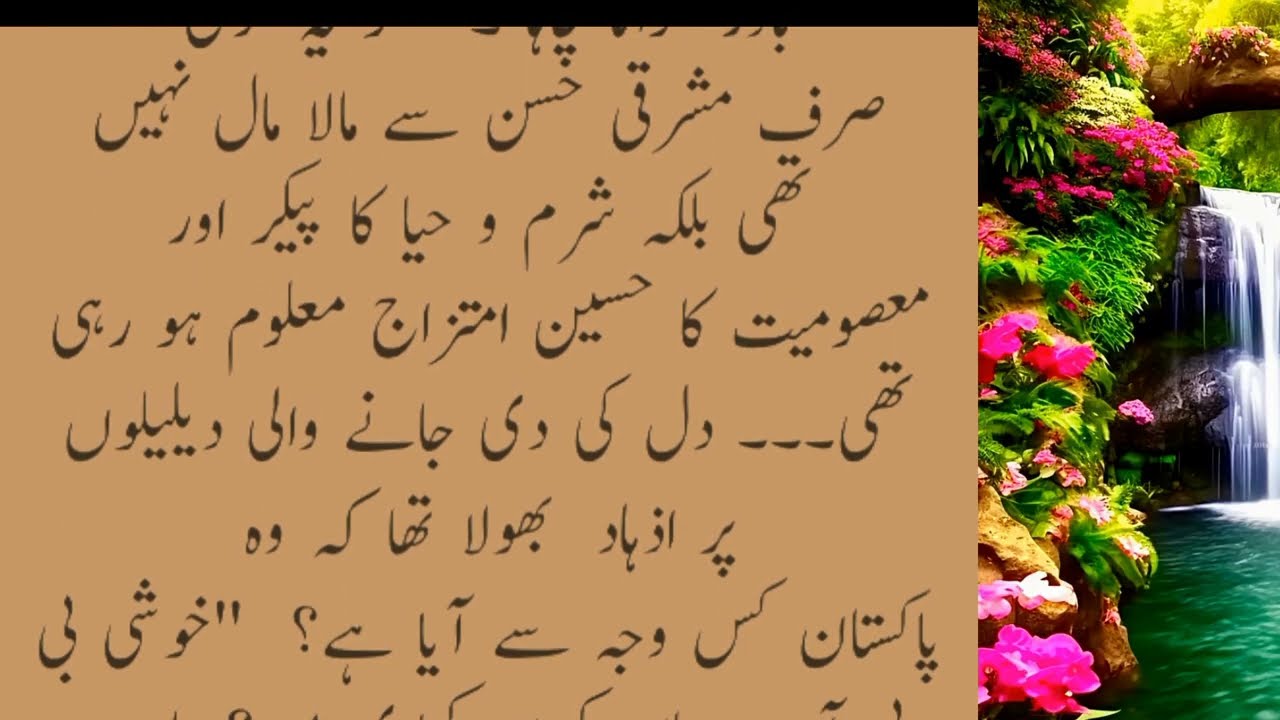 صرف مشرقی حسن سے مالا مال نہیں
تھی بلکہ شرم و حیا کا پیکر اور
معصومیت کا حسین امتزاج معلوم ہو رہی
تھی۔۔۔ دل کی دی جانے والی دیلیلوں
پر اذہاد بھولا تھا کہ وہ
پاکستان کس وجہ سے آیا ہے؟ "خوشی بی